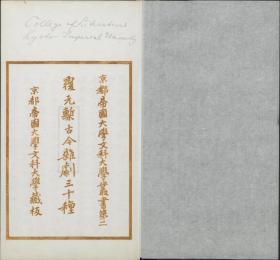 College of Literature
Kyoto Imperial University
京都帝國大學文科大學叢書第二
覆元槧古今雜劇三十種
京都帝國大學文科大學藏板